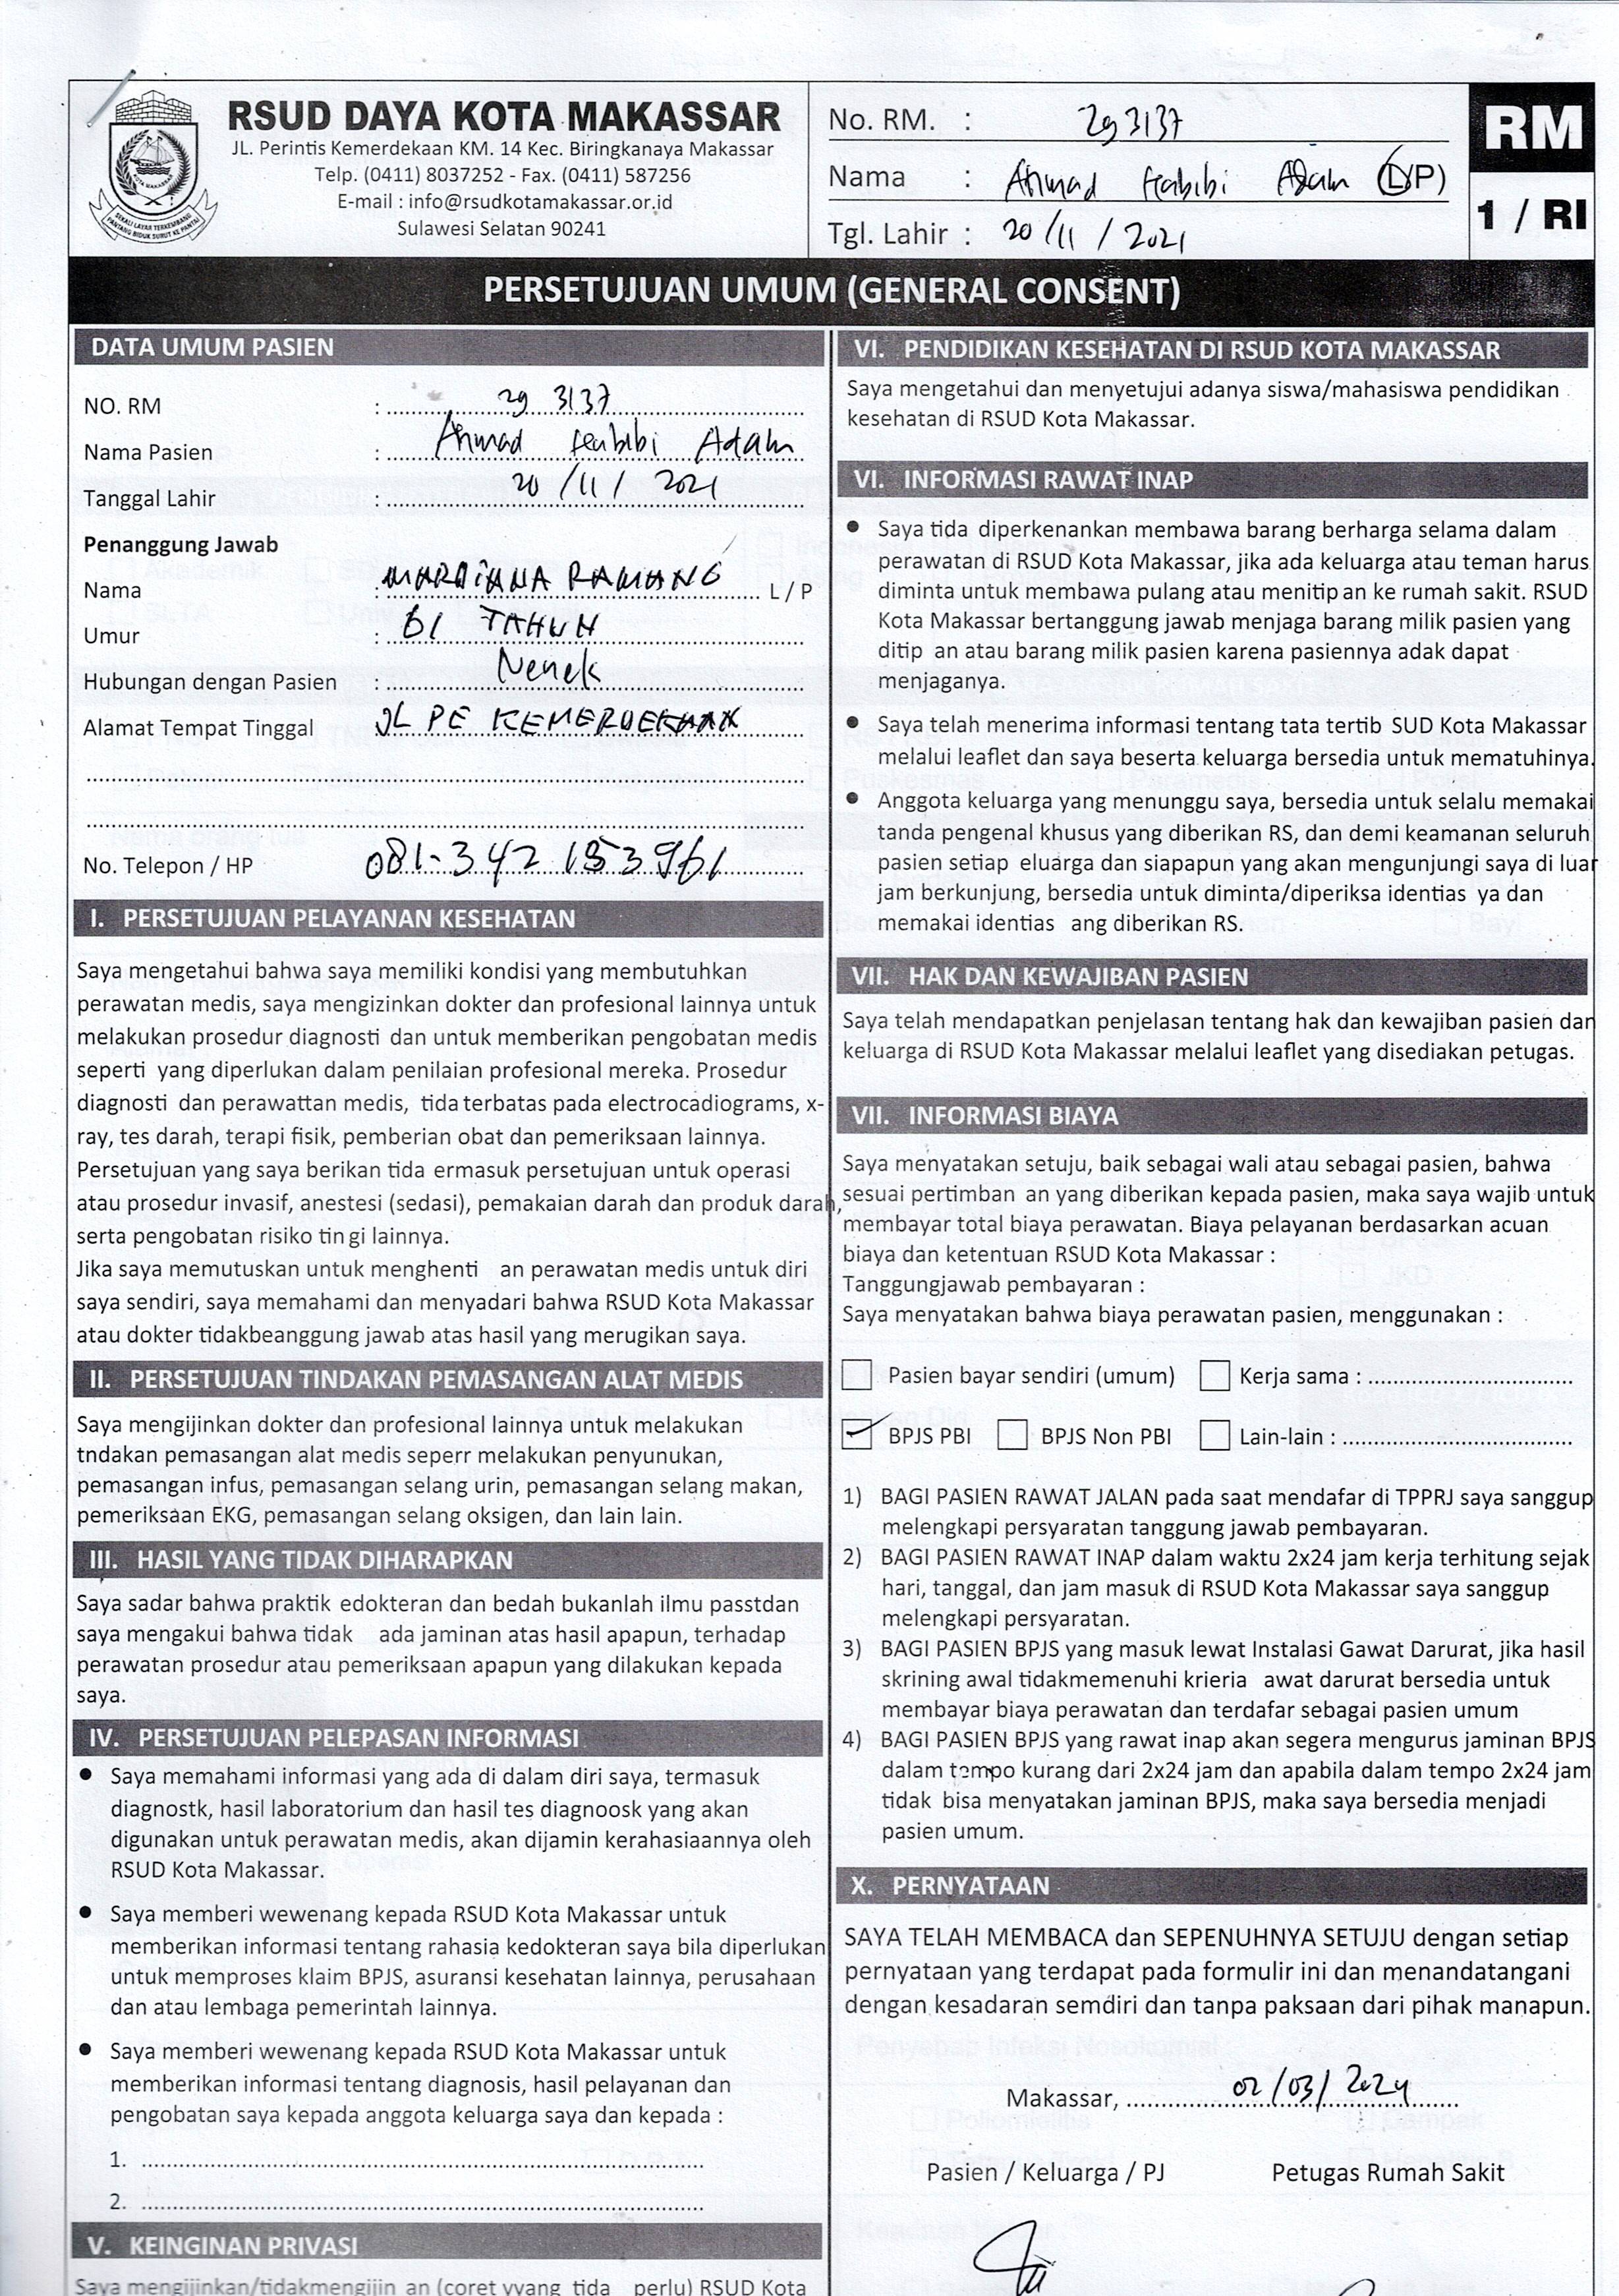 RSUD DAYA KOTA MAKASSAR
JL. Perintis Kemerdekaan KM. 14 Kec. Biringkanaya Makassar
Telp. (0411) 8037252 - Fax. (0411) 587256
E-mail : info@rsudkotamakassar.or.id
Sulawesi Selatan 90241
No. RM. : 293137
Nama : Ahmad Habibi Adam (L/P)
Tgl. Lahir : 20/11/2021
RM
1 / RI
PERSETUJUAN UMUM (GENERAL CONSENT)
DATA UMUM PASIEN
NO. RM : 29 3137
Nama Pasien : Ahmad Habibi Adam
Tanggal Lahir : 20/11/2021
Penanggung Jawab
Nama : MARDIANA RAMANG L / P
Umur : 61 TAHUN
Hubungan dengan Pasien : Nenek
Alamat Tempat Tinggal JL PE KEMERDEKAAN
No. Telepon / HP 081-342 153961
I. PERSETUJUAN PELAYANAN KESEHATAN
Saya mengetahui bahwa saya memiliki kondisi yang membutuhkan
perawatan medis, saya mengizinkan dokter dan profesional lainnya untuk
melakukan prosedur diagnosti dan untuk memberikan pengobatan medis
seperti yang diperlukan dalam penilaian profesional mereka. Prosedur
diagnosti dan perawattan medis, tida terbatas pada electrocadiograms, x-
ray, tes darah, terapi fisik, pemberian obat dan pemeriksaan lainnya.
Persetujuan yang saya berikan tida ermasuk persetujuan untuk operasi
atau prosedur invasif, anestesi (sedasi), pemakaian darah dan produk darah,
serta pengobatan risiko tin gi lainnya.
Jika saya memutuskan untuk menghenti an perawatan medis untuk diri
saya sendiri, saya memahami dan menyadari bahwa RSUD Kota Makassar
atau dokter tidakbeanggung jawab atas hasil yang merugikan saya.
II. PERSETUJUAN TINDAKAN PEMASANGAN ALAT MEDIS
Saya mengijinkan dokter dan profesional lainnya untuk melakukan
tndakan pemasangan alat medis seperr melakukan penyunukan,
pemasangan infus, pemasangan selang urin, pemasangan selang makan,
pemeriksaan EKG, pemasangan selang oksigen, dan lain lain.
III. HASIL YANG TIDAK DIHARAPKAN
Saya sadar bahwa praktik edokteran dan bedah bukanlah ilmu passtdan
saya mengakui bahwa tidak ada jaminan atas hasil apapun, terhadap
perawatan prosedur atau pemeriksaan apapun yang dilakukan kepada
saya.
IV. PERSETUJUAN PELEPASAN INFORMASI
● Saya memahami informasi yang ada di dalam diri saya, termasuk
diagnostk, hasil laboratorium dan hasil tes diagnoosk yang akan
digunakan untuk perawatan medis, akan dijamin kerahasiaannya oleh
RSUD Kota Makassar.
● Saya memberi wewenang kepada RSUD Kota Makassar untuk
memberikan informasi tentang rahasia kedokteran saya bila diperlukan
untuk memproses klaim BPJS, asuransi kesehatan lainnya, perusahaan
dan atau lembaga pemerintah lainnya.
● Saya memberi wewenang kepada RSUD Kota Makassar untuk
memberikan informasi tentang diagnosis, hasil pelayanan dan
pengobatan saya kepada anggota keluarga saya dan kepada :
1.
2.
V. KEINGINAN PRIVASI
Saya mengijinkan/tidakmengijin an (coret yyang tida perlu) RSUD Kota
VI. PENDIDIKAN KESEHATAN DI RSUD KOTA MAKASSAR
Saya mengetahui dan menyetujui adanya siswa/mahasiswa pendidikan
kesehatan di RSUD Kota Makassar.
VI. INFORMASI RAWAT INAP
● Saya tida diperkenankan membawa barang berharga selama dalam
perawatan di RSUD Kota Makassar, jika ada keluarga atau teman harus
diminta untuk membawa pulang atau menitip an ke rumah sakit. RSUD
Kota Makassar bertanggung jawab menjaga barang milik pasien yang
ditip an atau barang milik pasien karena pasiennya adak dapat
menjaganya.
● Saya telah menerima informasi tentang tata tertib SUD Kota Makassar
melalui leaflet dan saya beserta keluarga bersedia untuk mematuhinya.
● Anggota keluarga yang menunggu saya, bersedia untuk selalu memakai
tanda pengenal khusus yang diberikan RS, dan demi keamanan seluruh
pasien setiap eluarga dan siapapun yang akan mengunjungi saya di luar
jam berkunjung, bersedia untuk diminta/diperiksa identias ya dan
memakai identias ang diberikan RS.
VII. HAK DAN KEWAJIBAN PASIEN
Saya telah mendapatkan penjelasan tentang hak dan kewajiban pasien dan
keluarga di RSUD Kota Makassar melalui leaflet yang disediakan petugas.
VII. INFORMASI BIAYA
Saya menyatakan setuju, baik sebagai wali atau sebagai pasien, bahwa
sesuai pertimban an yang diberikan kepada pasien, maka saya wajib untuk
membayar total biaya perawatan. Biaya pelayanan berdasarkan acuan
biaya dan ketentuan RSUD Kota Makassar :
Tanggungjawab pembayaran :
Saya menyatakan bahwa biaya perawatan pasien, menggunakan :
Pasien bayar sendiri (umum) Kerja sama :
BPJS PBI BPJS Non PBI Lain-lain :
1) BAGI PASIEN RAWAT JALAN pada saat mendafar di TPPRJ saya sanggup
melengkapi persyaratan tanggung jawab pembayaran.
2) BAGI PASIEN RAWAT INAP dalam waktu 2x24 jam kerja terhitung sejak
hari, tanggal, dan jam masuk di RSUD Kota Makassar saya sanggup
melengkapi persyaratan.
3) BAGI PASIEN BPJS yang masuk lewat Instalasi Gawat Darurat, jika hasil
skrining awal tidakmemenuhi krieria awat darurat bersedia untuk
membayar biaya perawatan dan terdafar sebagai pasien umum
4) BAGI PASIEN BPJS yang rawat inap akan segera mengurus jaminan BPJS
dalam tempo kurang dari 2x24 jam dan apabila dalam tempo 2x24 jam
tidak bisa menyatakan jaminan BPJS, maka saya bersedia menjadi
pasien umum.
X. PERNYATAAN
SAYA TELAH MEMBACA dan SEPENUHNYA SETUJU dengan setiap
pernyataan yang terdapat pada formulir ini dan menandatangani
dengan kesadaran semdiri dan tanpa paksaan dari pihak manapun.
Makassar, 02/03/2024
Pasien / Keluarga / PJ Petugas Rumah Sakit